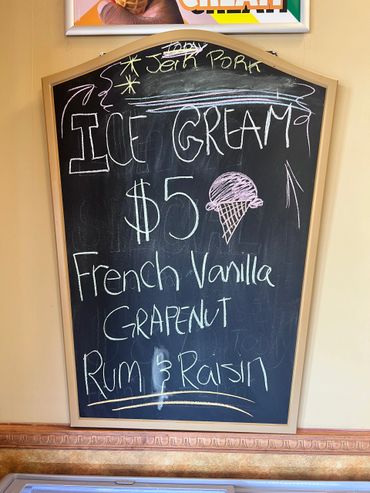 CREAM
TODAY
* Jerk PORK
*
ICE CREAM
$5
French Vanilla
GRAPENUT
Rum & Raisin